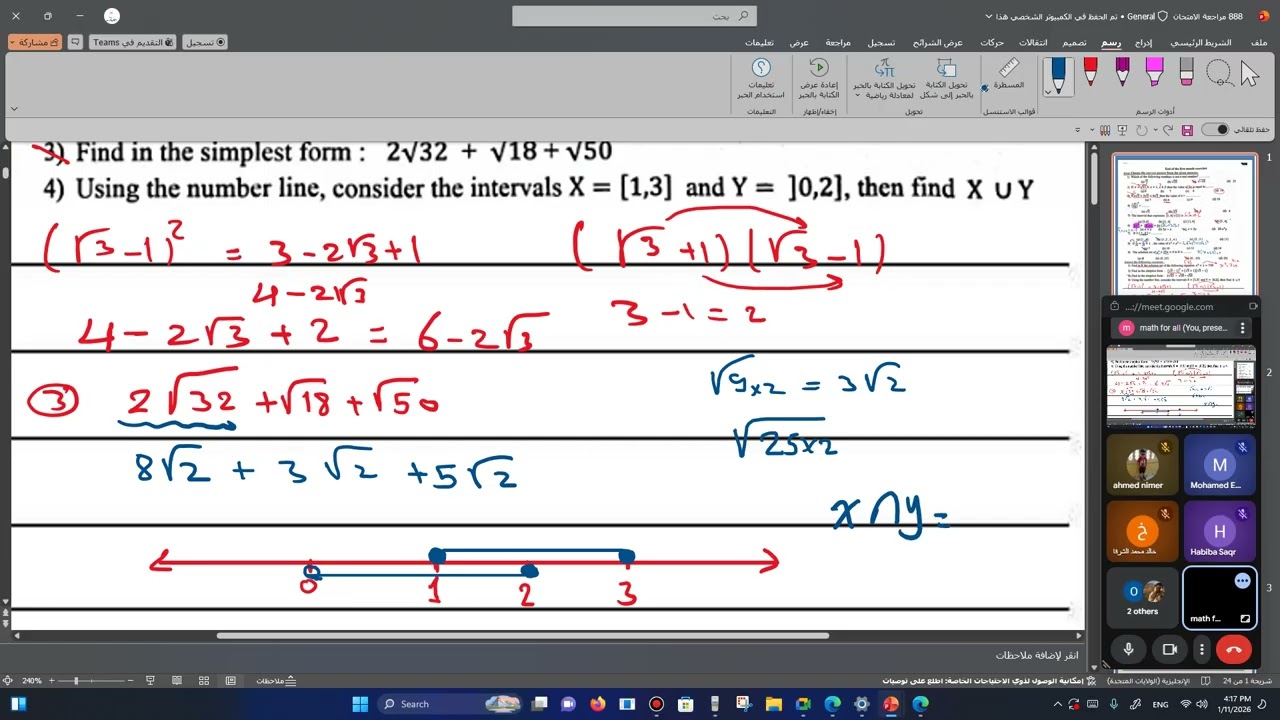 888 مراجعة الامتحان • General • تم الحفظ في الكمبيوتر الشخصي هذا
بحث
ملف الشريط الرئيسي إدراج رسم تصميم انتقالات حركات عرض الشرائح تسجيل مراجعة عرض تعليمات
تسجيل التقديم في Teams مشاركة
المسطرة
تحويل الكتابة بالحبر إلى شكل
تحويل الكتابة بالحبر لمعادلة رياضية
إعادة عرض الكتابة بالحبر
تعليمات استخدام الحبر
أدوات الرسم قوالب الاستنسل تحويل إخفاء/إظهار التعليمات
حفظ تلقائي
3) Find in the simplest form : 2√32 + √18 + √50
4) Using the number line, consider the intervals X = [1,3] and Y = ]0,2], then find X ∪ Y
(√3 - 1)² = 3 - 2√3 + 1
(√3 + 1)(√3 - 1
4 - 2√3
3 - 1 = 2
4 - 2√3 + 2 = 6 - 2√3
√9×2 = 3√2
③ 2√32 + √18 + √50
√25×2
8√2 + 3√2 + 5√2
x ∩ y =
0 1 2 3
1
2
3
://meet.google.com
m math for all (You, prese...
ahmed nimer
M
Mohamed E...
خ
خالد محمد الشرفا
H
Habiba Saqr
O
2 others
math f...
انقر لإضافة ملاحظات
شريحة 1 من 24 الإنجليزية (الولايات المتحدة) إمكانية الوصول لذوي الاحتياجات الخاصة: اطلع على توصيات
ملاحظات
240%
Search
4:17 PM
1/11/2026